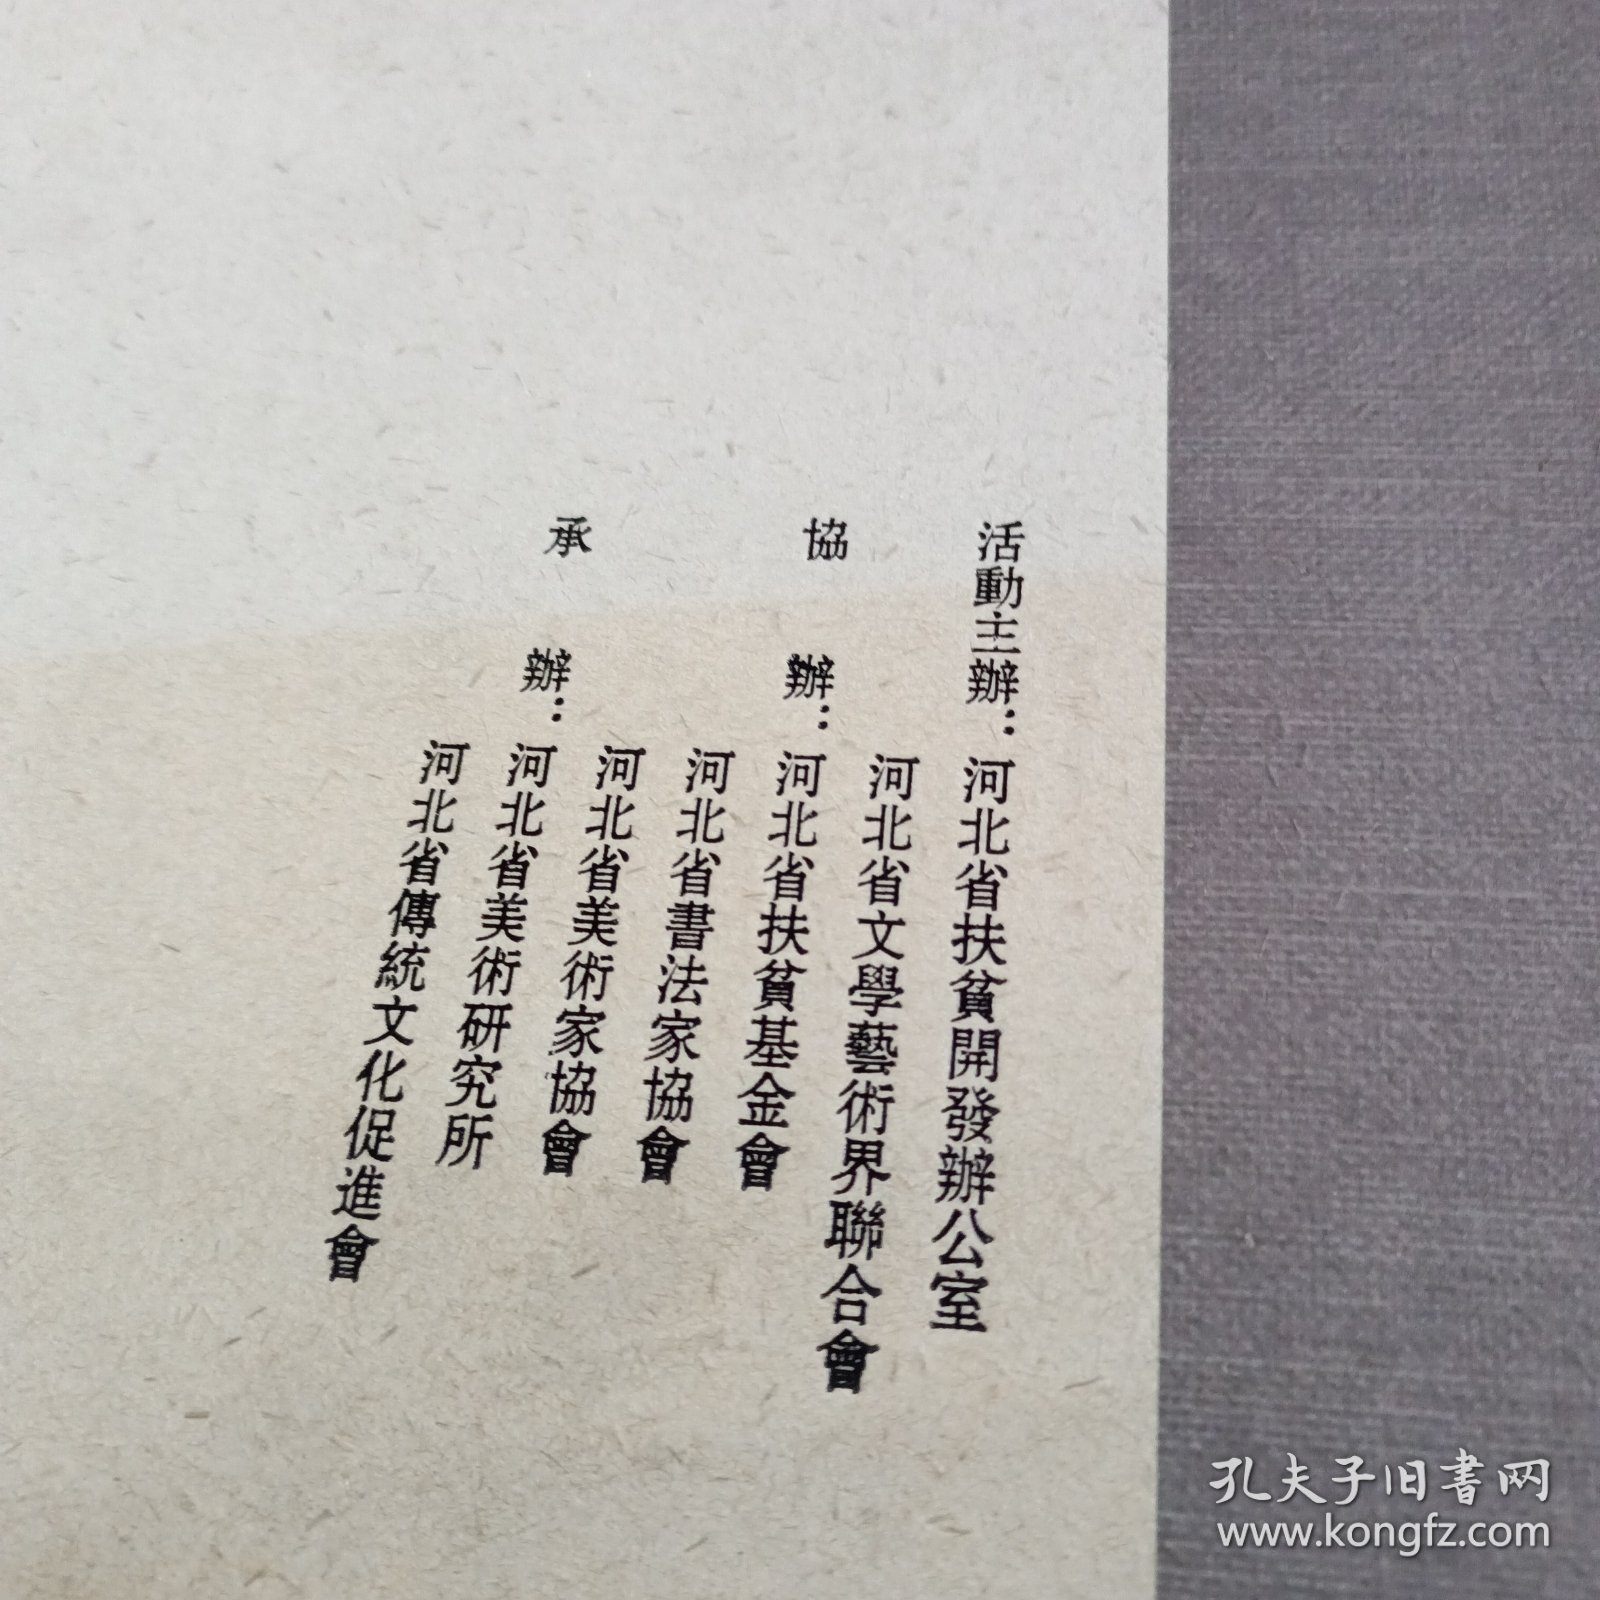 活動主辦：河北省扶貧開發辦公室
河北省文學藝術界聯合會
協辦：河北省扶貧基金會
河北省書法家協會
河北省美術家協會
承辦：河北省美術研究所
河北省傳統文化促進會
孔夫子旧書网
www.kongfz.com